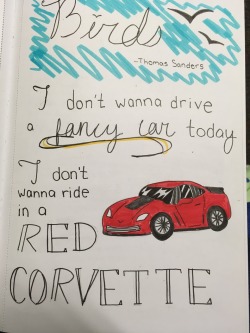 Birds
-Thomas Sanders
I don't wanna drive
a fancy car today
I don't
wanna ride
in a
RED
CORVETTE